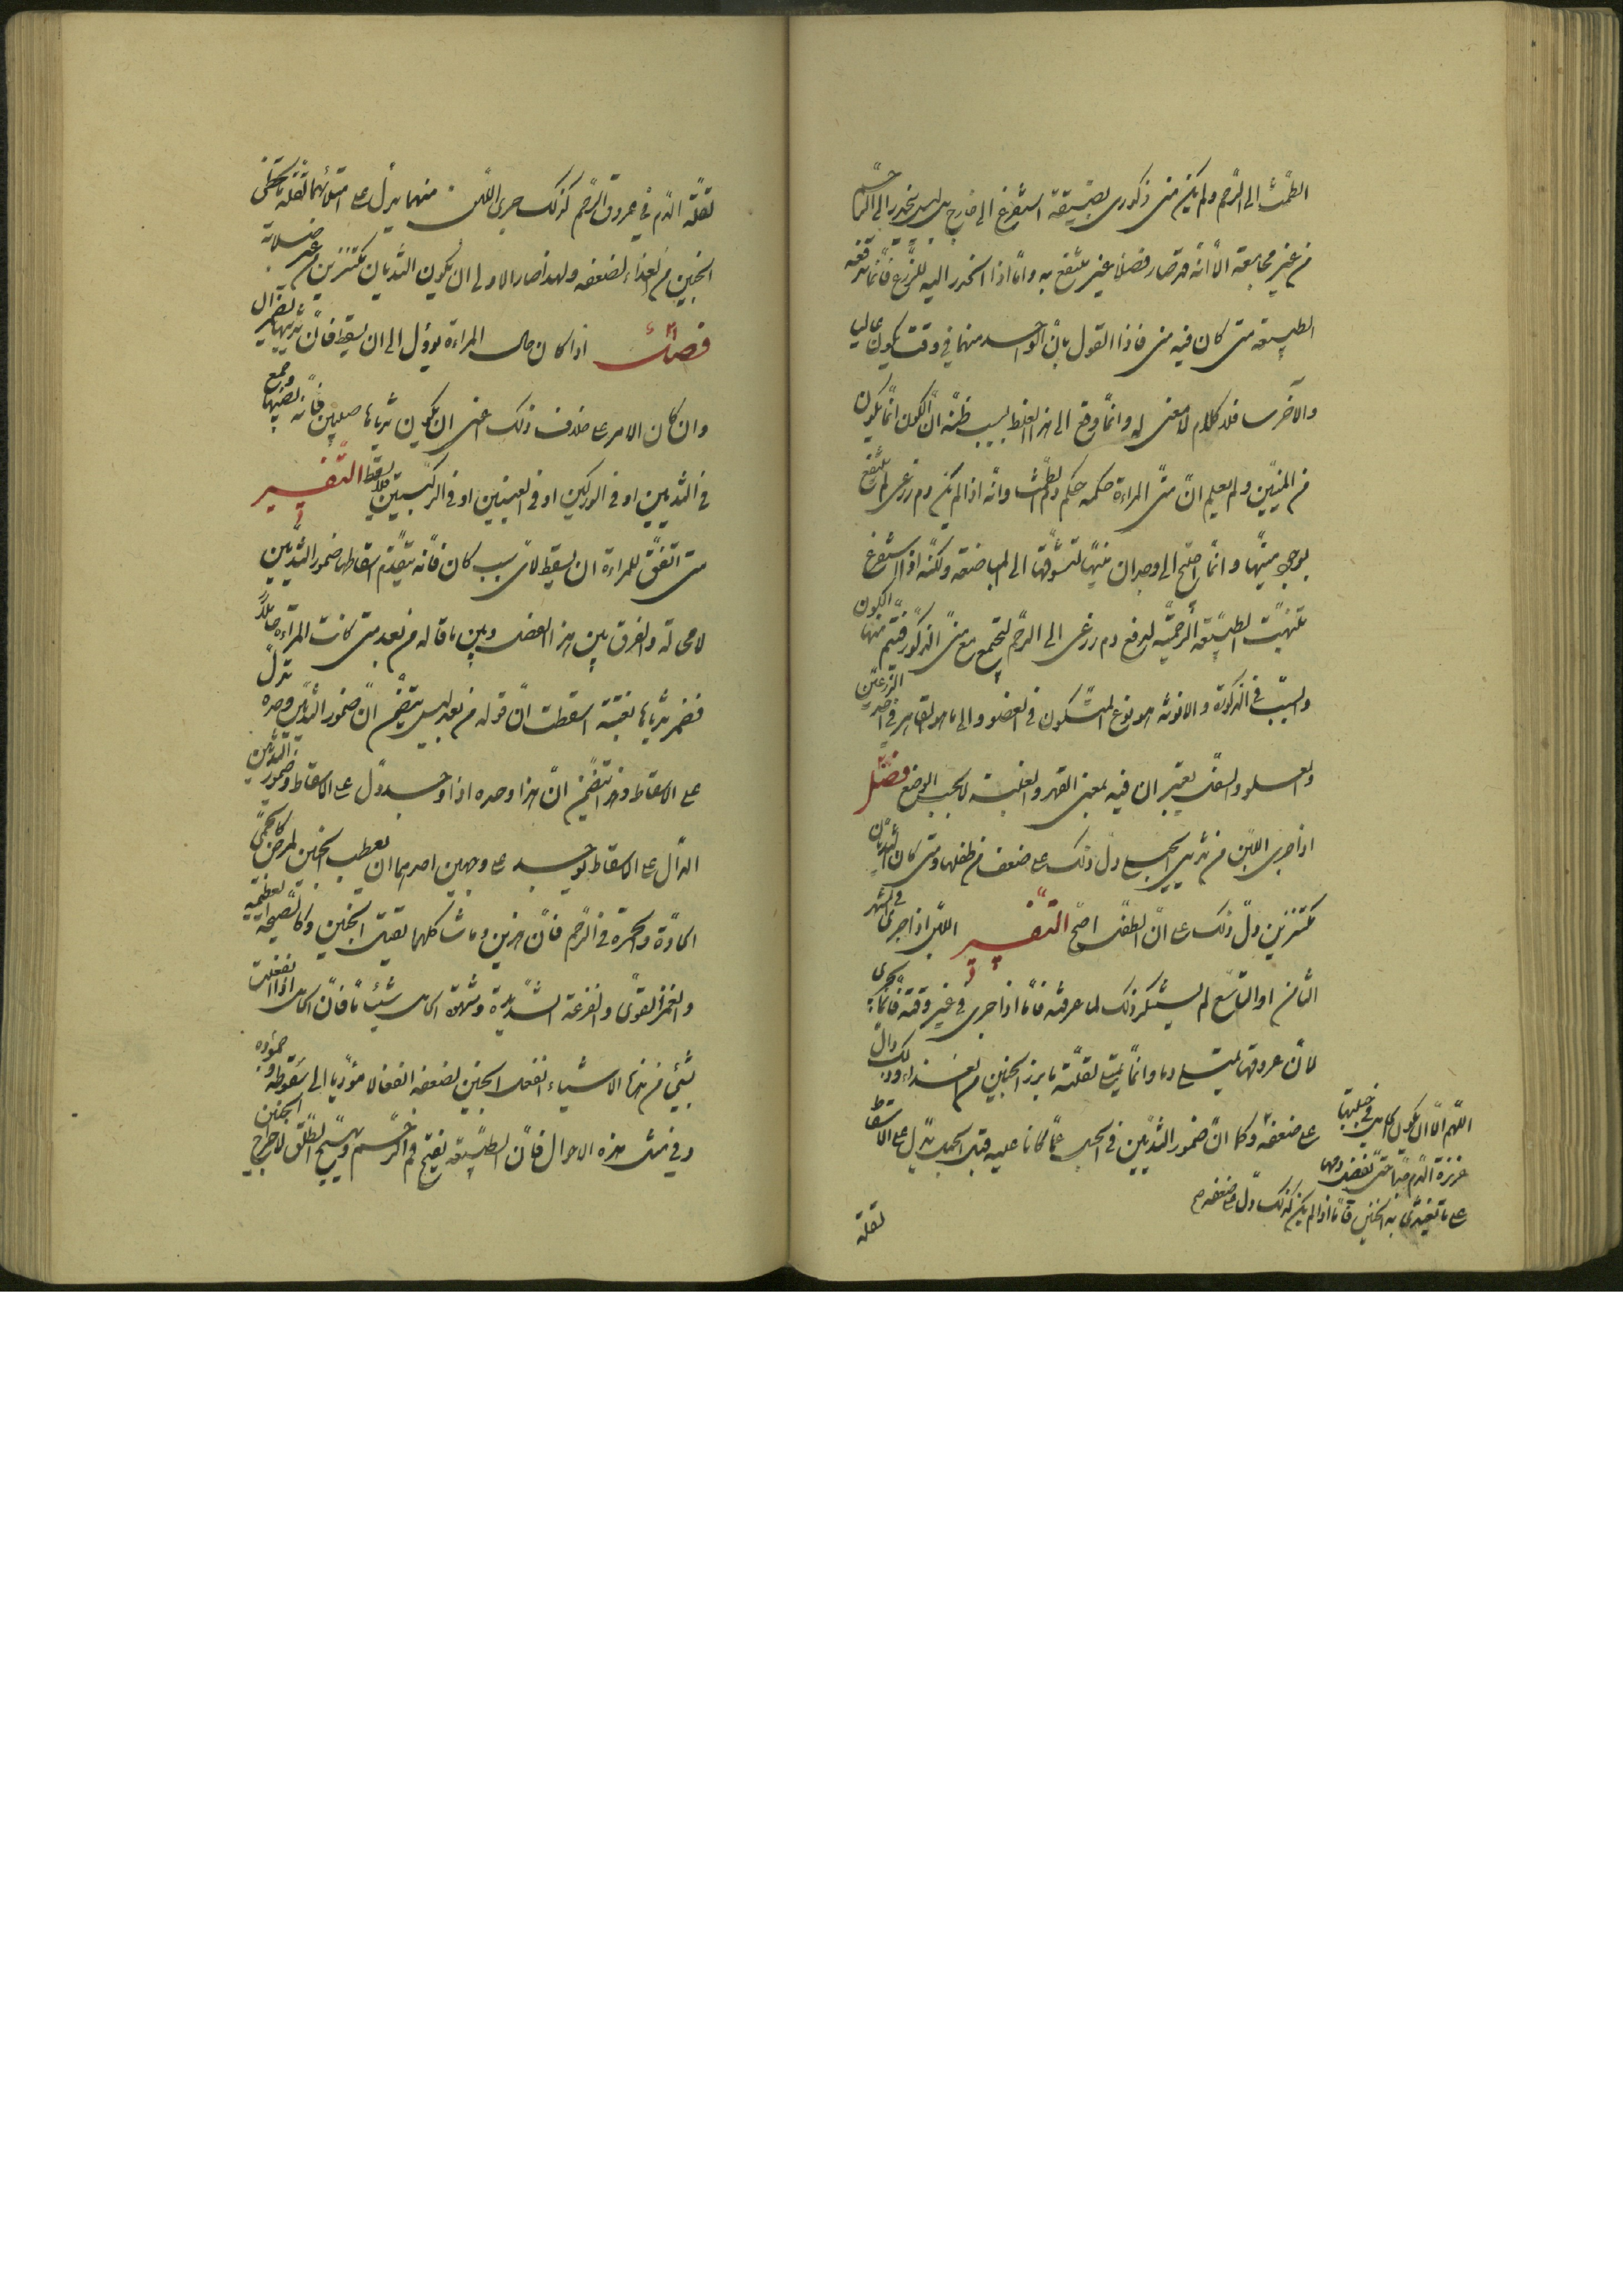 الطمث الى الرحم ولم يكن منى ذكورى بصيقه استفرغ الى خارج بل ليس ينحدر الى الرحم
من غير مجامعة الا انه قد صار فضلا غير منتفع به وامّا اذا انحدر اليه للزرع فانما تدفعه
الطبيعة متى كان فيه منى فاذا القول بان الواحد منهما فى وقت يكون
والآخر ساقلا كلام لا معنى له وانّما وقع الى هذا الغلط بسبب ظنّه انّ الكون انّما يكون
من المنيّين ولم يعلم انّ منىّ المراءة حكمه حكم دم الطمث وانّه اذا لم يكن دم زرعى لم ينتفع
بوجود منيّها وانّما احتيج الى وجدان منيّها لتشوّقها الى المباضعة ولكنّه اذا استفرغ
تنبّهت الطبيعة الرحميّة لدفع دم زرعى الى الرحم ليجتمع مع منىّ الذكور فيتم منهما الكون
والسبب فى الذكورة والانوثة هو نوع المتكون فى العضو والى ما هو القاهر فى احد الزرعين
والعلو والسفل يعتبران فيه بمعنى القهر والغلبة لا بحسب الوضع فصل
اذا جرى اللبن من ثديى الحبلى دل ذلك على ضعف من طفلها ومتى كان الثديان
مكتنزين دلّ ذلك على انّ الطفل اصحّ التفسير اللبن اذا جرى فى الشهر
الثامن او التاسع لم يستنكر ذلك لما عرفته فامّا اذا جرى فى غير وقته فانّما يجرى
لانّ عروقها تمتلى دما وانّما تمتلى لقلّة ما يرزا الجنين من الغذاء وذلك دال
على ضعفه وكما انّ ضمور الثديين فى الحبل عمّا كانا عليه قبل الحبل يدل على الاسقاط
اللهم الا ان يكون الحامل فى جبلتها
غزيرة الدم جدا حتى يفضل دمها
على ما يغتذى به الجنين فامّا اذا لم يكن كذلك دلّ على ضعفه
لقلة
لقلّة الدم فى عروق الرحم كذلك جرى اللبن منهما يدل على امتلائهما لقلة ما يحظى
الجنين من الغذاء لضعفه ولهذا صار الاولى ان يكون الثديان مكتنزين من غير صلابة
فصل اذا كان حال المراءة يؤول الى ان يسقط فان ثدييها يضمران
وان كان الامر على خلاف ذلك اعنى ان يكون ثدياها صلبين فانه يصيبها وجع
فى الثديين او فى الوركين او فى العينين او فى الركبتين فلا يسقط التفسير
متى اتفق للمراءة ان يسقط لاىّ سبب كان فانّه يتقدّم اسقاطها ضمور الثديين
لا محالة والفرق بين هذا الفصل وبين ما قاله من بعد متى كانت المراءة حاملا
فضمر ثدياها بغتة اسقطت انّ قوله من بعد ليس يتضمّن انّ ضمور الثديين وحده يدلّ
على الاسقاط وهذا يتضمن انّ هذا وحده اذا وجد دلّ على الاسقاط وضمور الثديين
الدالّ على الاسقاط يوجد على وجهين احدهما ان يعطب الجنين لمرض كالحمىّ
الحادّة والحمرة فى الرحم فانّ هذين وما شاكلهما يقتل الجنين وكالصّيحة العظيمة
والغمز القوىّ والفزعة الشديدة وشهوة الحامل شيئا ما فانّ الحامل اذا انفعلت
بشئ من هذه الاشياء انفعل الجنين لضعفه انفعالا مؤدّيا الى سقوطه وخموده
وفى مثل هذه الاحوال فانّ الطبيعة تفتح فم الرحم وتهيّج الطّلق لاخراج الجنين